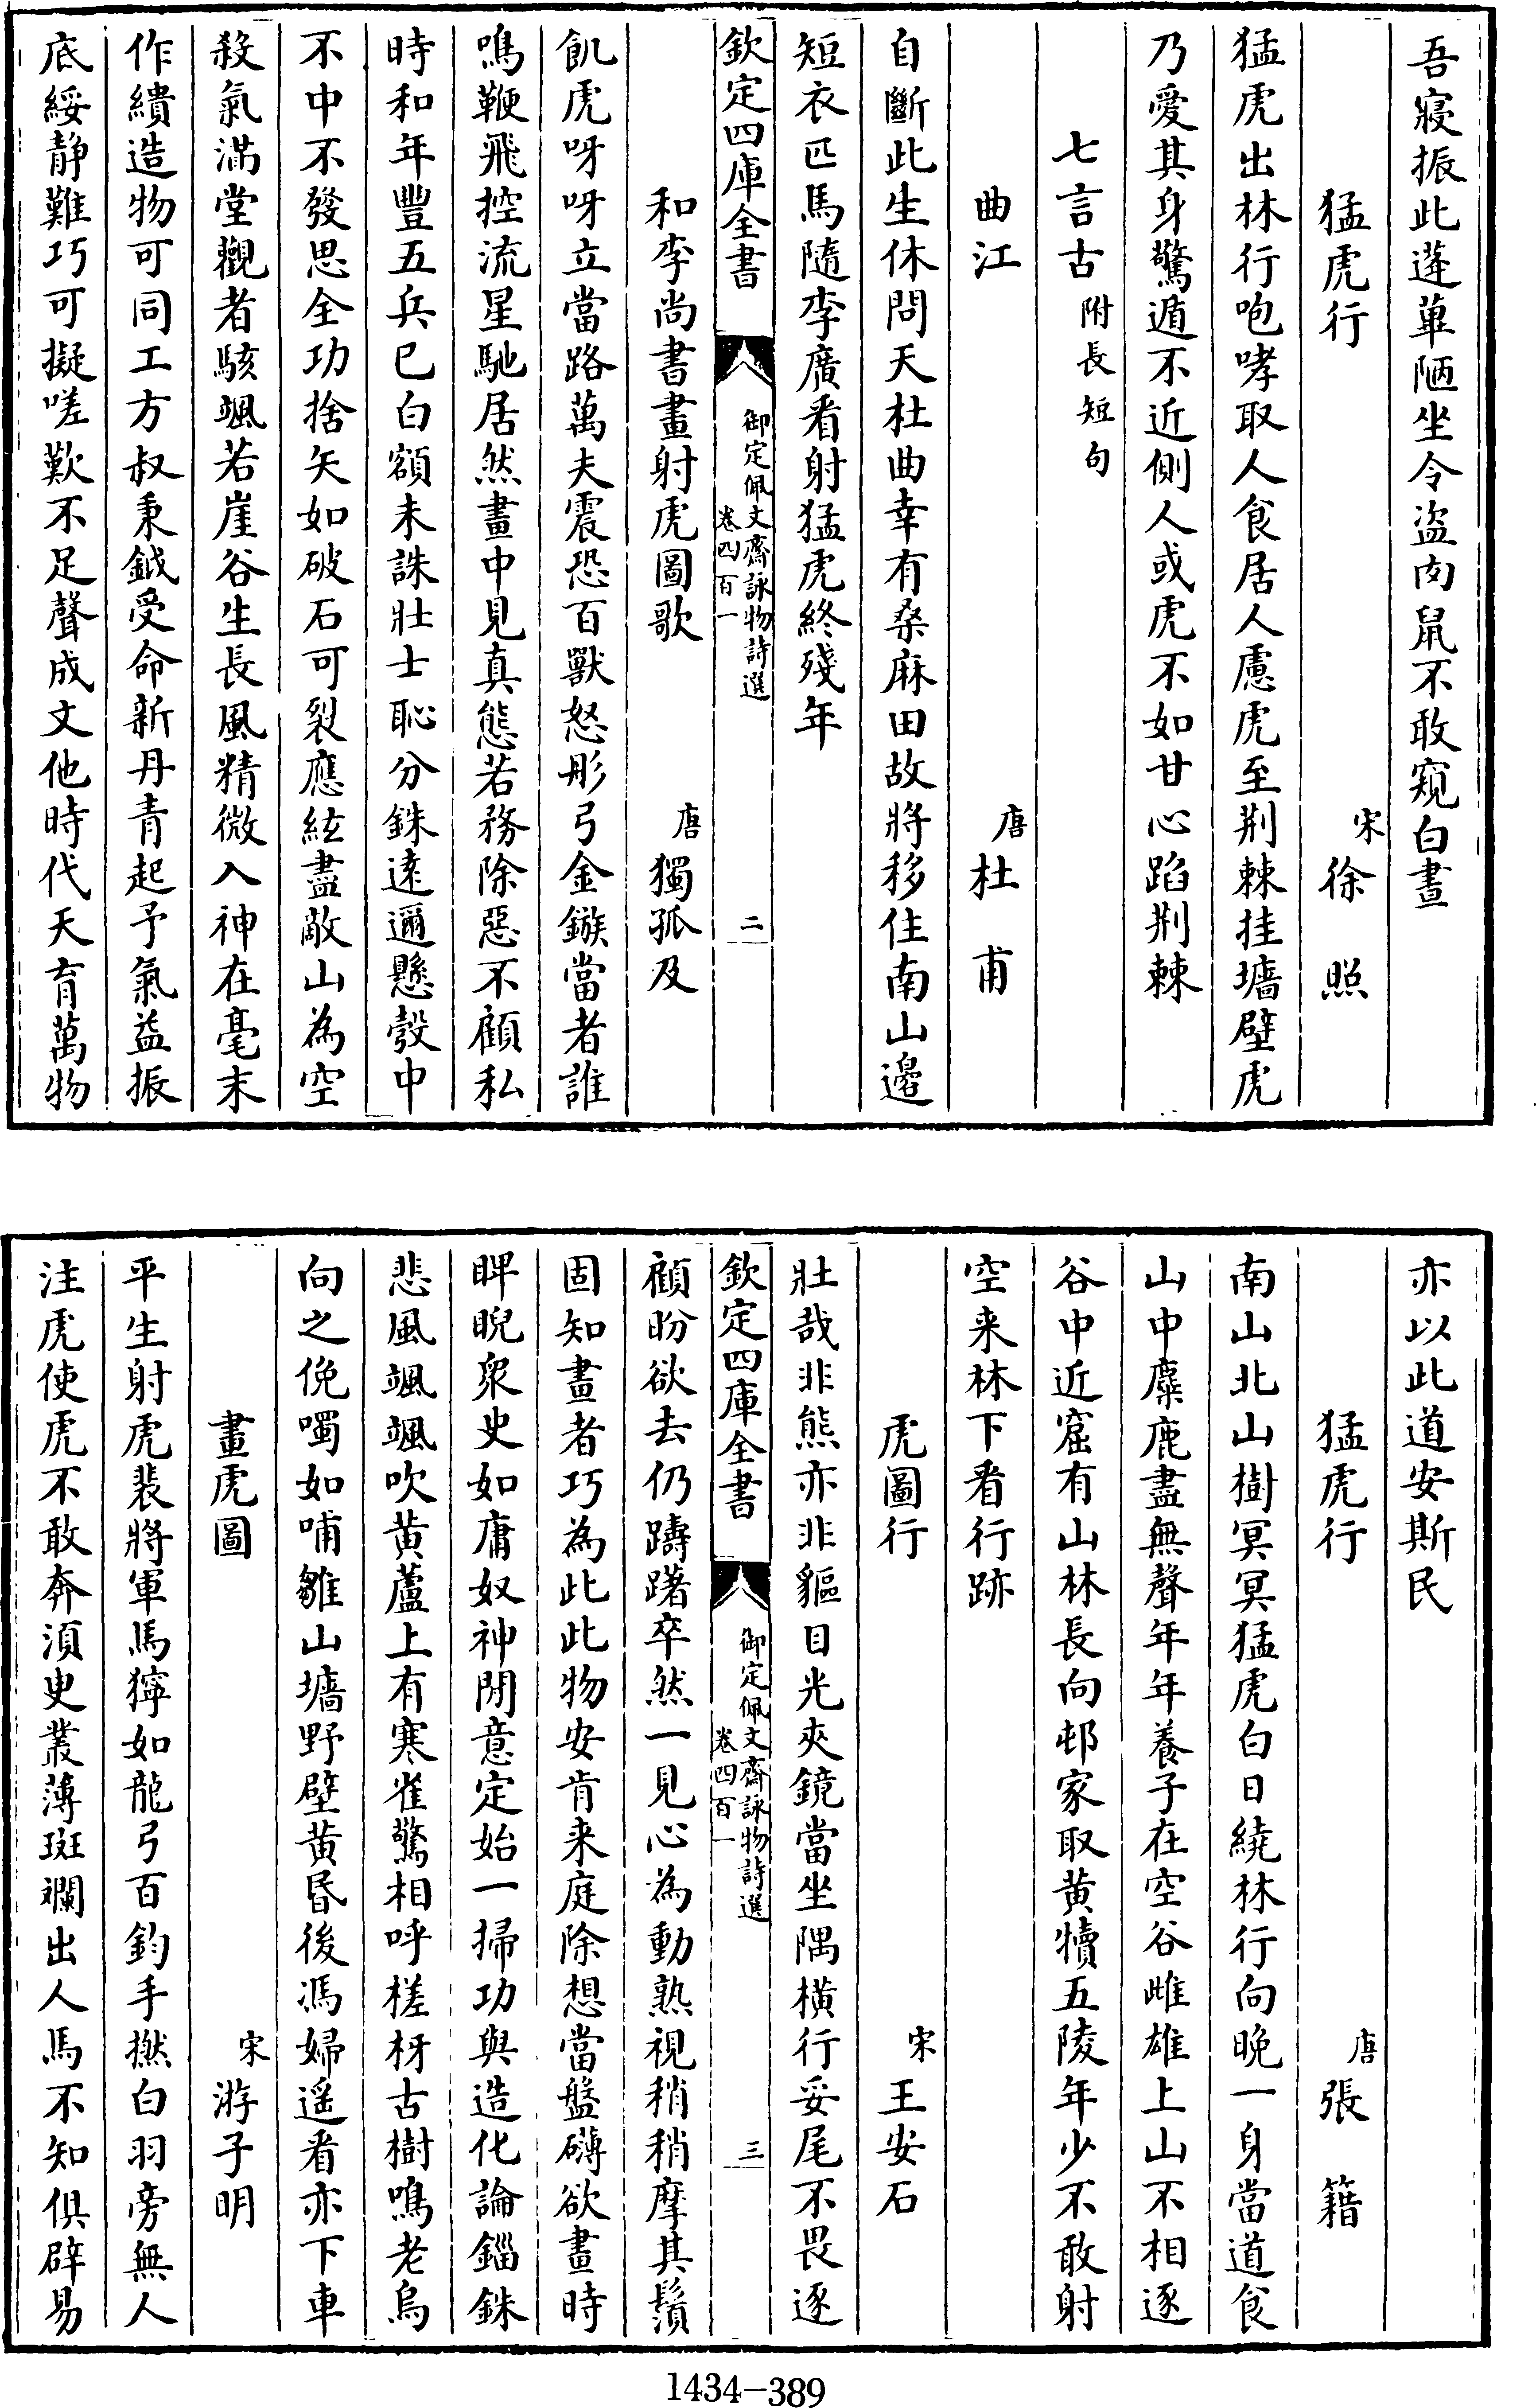 吾寢振此蓬蓽陋坐令盜肉鼠不敢窺白晝
猛虎行 宋 徐照
猛虎出林行咆哮取人食居人慮虎至荆棘挂墻壁虎
乃愛其身驚遁不近側人或虎不如甘心蹈荆棘
七言古 附長短句
曲江 唐 杜甫
自斷此生休問天杜曲幸有桑麻田故將移住南山邉
短衣匹馬隨李廣看射猛虎終殘年
欽定四庫全書 御定佩文齋詠物詩選 卷四百一 二
和李尚書畫射虎圖歌 唐 獨孤及
飢虎呀呀立當路萬夫震恐百獸怒彤弓金鏃當者誰
鳴鞭飛控流星馳居然畫中見真態若務除惡不顧私
時和年豐五兵已白額未誅壯士恥分銖遠邇懸彀中
不中不發思全功捨矢如破石可裂應絃盡敵山為空
殺氣滿堂觀者駭颯若崖谷生長風精微入神在毫末
作繢造物可同工方叔秉鉞受命新丹青起予氣益振
底綏静難巧可擬嗟歎不足聲成文他時代天育萬物
亦以此道安斯民
猛虎行 唐 張籍
南山北山樹冥冥猛虎白日繞林行向晚一身當道食
山中麋鹿盡無聲年年養子在空谷雌雄上山不相逐
谷中近窟有山林長向邨家取黄犢五陵年少不敢射
空来林下看行跡
虎圖行 宋 王安石
壯哉非熊亦非貙目光夾鏡當坐隅橫行妥尾不畏逐
顧盼欲去仍躊躇卒然一見心為動熟視稍稍摩其鬚
固知畫者巧為此此物安肯来庭除想當盤礴欲畫時
睥睨衆史如庸奴神閒意定始一掃功與造化論錙銖
悲風颯颯吹黄蘆上有寒雀驚相呼槎枒古樹鳴老烏
向之俛噣如哺雛山墻野壁黄昏後馮婦遥看亦下車
欽定四庫全書 御定佩文齋詠物詩選 卷四百一 三
畫虎圖 宋 游子明
平生射虎裴將軍馬獰如龍弓百鈞手撚白羽旁無人
注虎使虎不敢奔湏臾叢薄斑斕出人馬不知俱辟易
1434-389